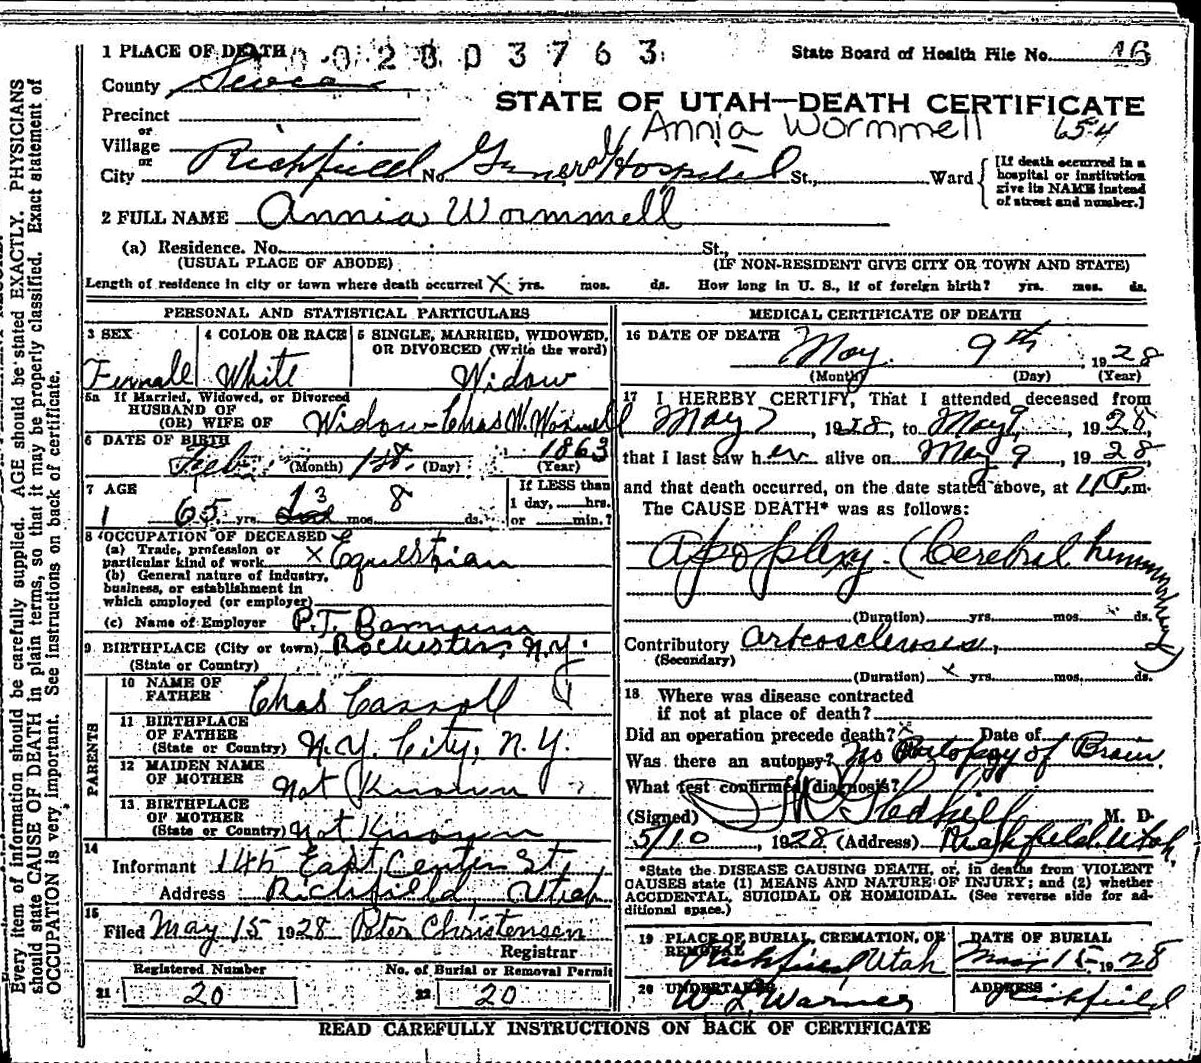 1 PLACE OF DEATH 0 0 2 8 0 3 7 6 3 State Board of Health File No. 46
County Sevier
STATE OF UTAH—DEATH CERTIFICATE
Precinct
Annia Wormmell 654
or
Village
or
City Richfield No. General Hospital St., Ward [If death occurred in a hospital or institution give its NAME instead of street and number.]
2 FULL NAME Annia Wormmell
(a) Residence. No. St.,
(USUAL PLACE OF ABODE) (IF NON-RESIDENT GIVE CITY OR TOWN AND STATE)
Length of residence in city or town where death occurred X yrs. mos. ds. How long in U. S., if of foreign birth? yrs. mos. ds.
PERSONAL AND STATISTICAL PARTICULARS
3 SEX 4 COLOR OR RACE 5 SINGLE, MARRIED, WIDOWED,
OR DIVORCED (Write the word)
Femall White Widow
5a If Married, Widowed, or Divorced
HUSBAND OF
(OR) WIFE OF Widow-Chas W. Wormell
6 DATE OF BIRTH
Feb. (Month) 1st. (Day) 1863 (Year)
7 AGE If LESS than
65 yrs. 3 mos. 8 ds. 1 day, hrs.
or min.?
8 OCCUPATION OF DECEASED
(a) Trade, profession or
particular kind of work X Equestrian
(b) General nature of industry,
business, or establishment in
which employed (or employer)
(c) Name of Employer P.T. Barnum
9 BIRTHPLACE (City or town) Rochester, N.Y.
(State or Country)
PARENTS
10 NAME OF
FATHER Chas Carroll
11 BIRTHPLACE
OF FATHER
(State or Country) N.Y. City, N.Y.
12 MAIDEN NAME
OF MOTHER Not Known
13 BIRTHPLACE
OF MOTHER
(State or Country) Not Known
14
Informant 145 East Center St,
Address Richfield, Utah
15
Filed May 15 1928 Peter Christensen
Registrar
Registered Number No. of Burial or Removal Permit
21 20 22 20
MEDICAL CERTIFICATE OF DEATH
16 DATE OF DEATH
May 9th, 1928
(Month) (Day) (Year)
17 I HEREBY CERTIFY, That I attended deceased from
May 7, 1928, to May 9, 1928,
that I last saw her alive on May 9, 1928,
and that death occurred, on the date stated above, at 11 P.m.
The CAUSE DEATH* was as follows:
Apoplexy. (Cerebral
(Duration) yrs. mos. ds.
Contributory Arteosclerosis,
(Secondary)
(Duration) x yrs. mos. ds.
18 Where was disease contracted
if not at place of death?
Did an operation precede death? x Date of
Was there an autopsy? No Autopsy of Brain.
What test confirmed diagnosis?
(Signed) M. D.
5/10, 1928 (Address) Richfield, Utah.
*State the DISEASE CAUSING DEATH, or, in deaths from VIOLENT
CAUSES state (1) MEANS AND NATURE OF INJURY; and (2) whether
ACCIDENTAL, SUICIDAL OR HOMICIDAL. (See reverse side for ad-
ditional space.)
19 PLACE OF BURIAL, CREMATION, OR DATE OF BURIAL
REMOVAL
Richfield Utah May 15 1928
20 UNDERTAKER ADDRESS
W. L. Warner Richfield
READ CAREFULLY INSTRUCTIONS ON BACK OF CERTIFICATE
Every item of information should be carefully supplied. AGE should be stated EXACTLY. PHYSICIANS
should state CAUSE OF DEATH in plain terms, so that it may be properly classified. Exact statement of
OCCUPATION is very important. See instructions on back of certificate.